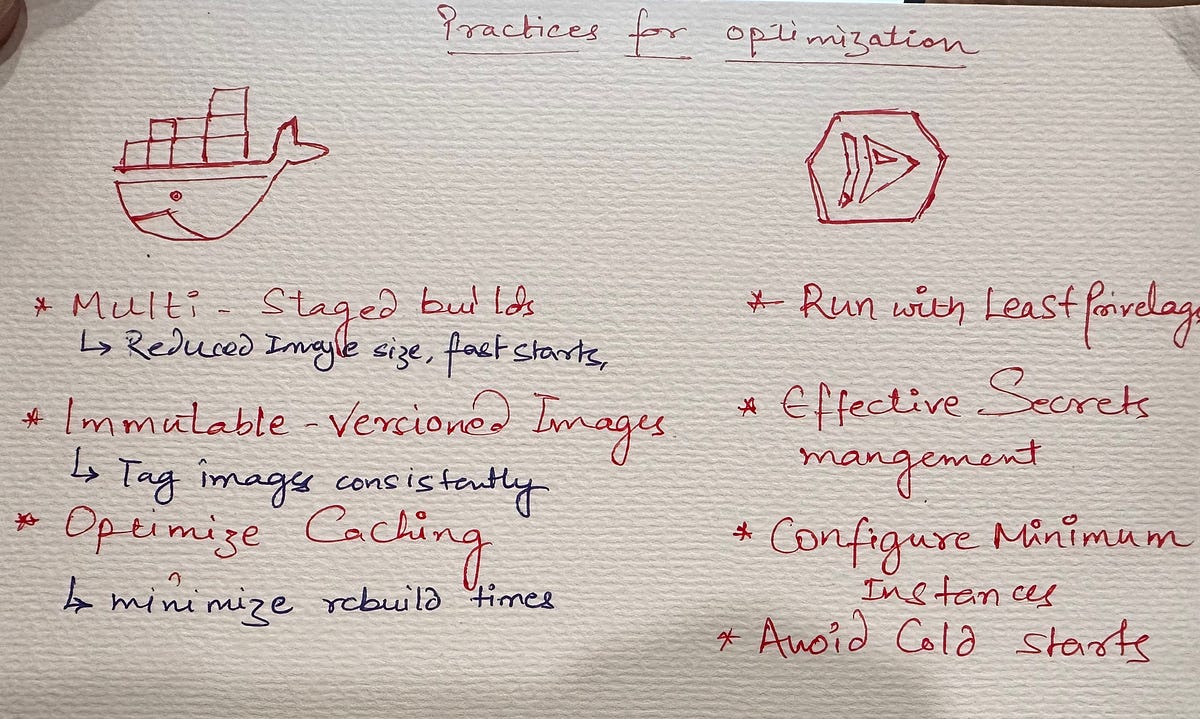 Practices for optimization
* Multi - Staged builds
↳ Reduced Image size, fast starts,
* Immutable - Versioned Images
↳ Tag images consistently
* Optimize Caching
↳ minimize rebuild times
* Run with Least Privelag
* Effective Secrets
mangement
* Configure Minimum
Instances
* Avoid Cold starts